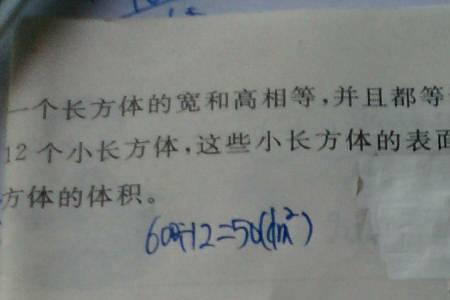 一个长方体的宽和高相等,并且都等
12个小长方体,这些小长方体的表面
方体的体积。
600÷12=50(dm²)